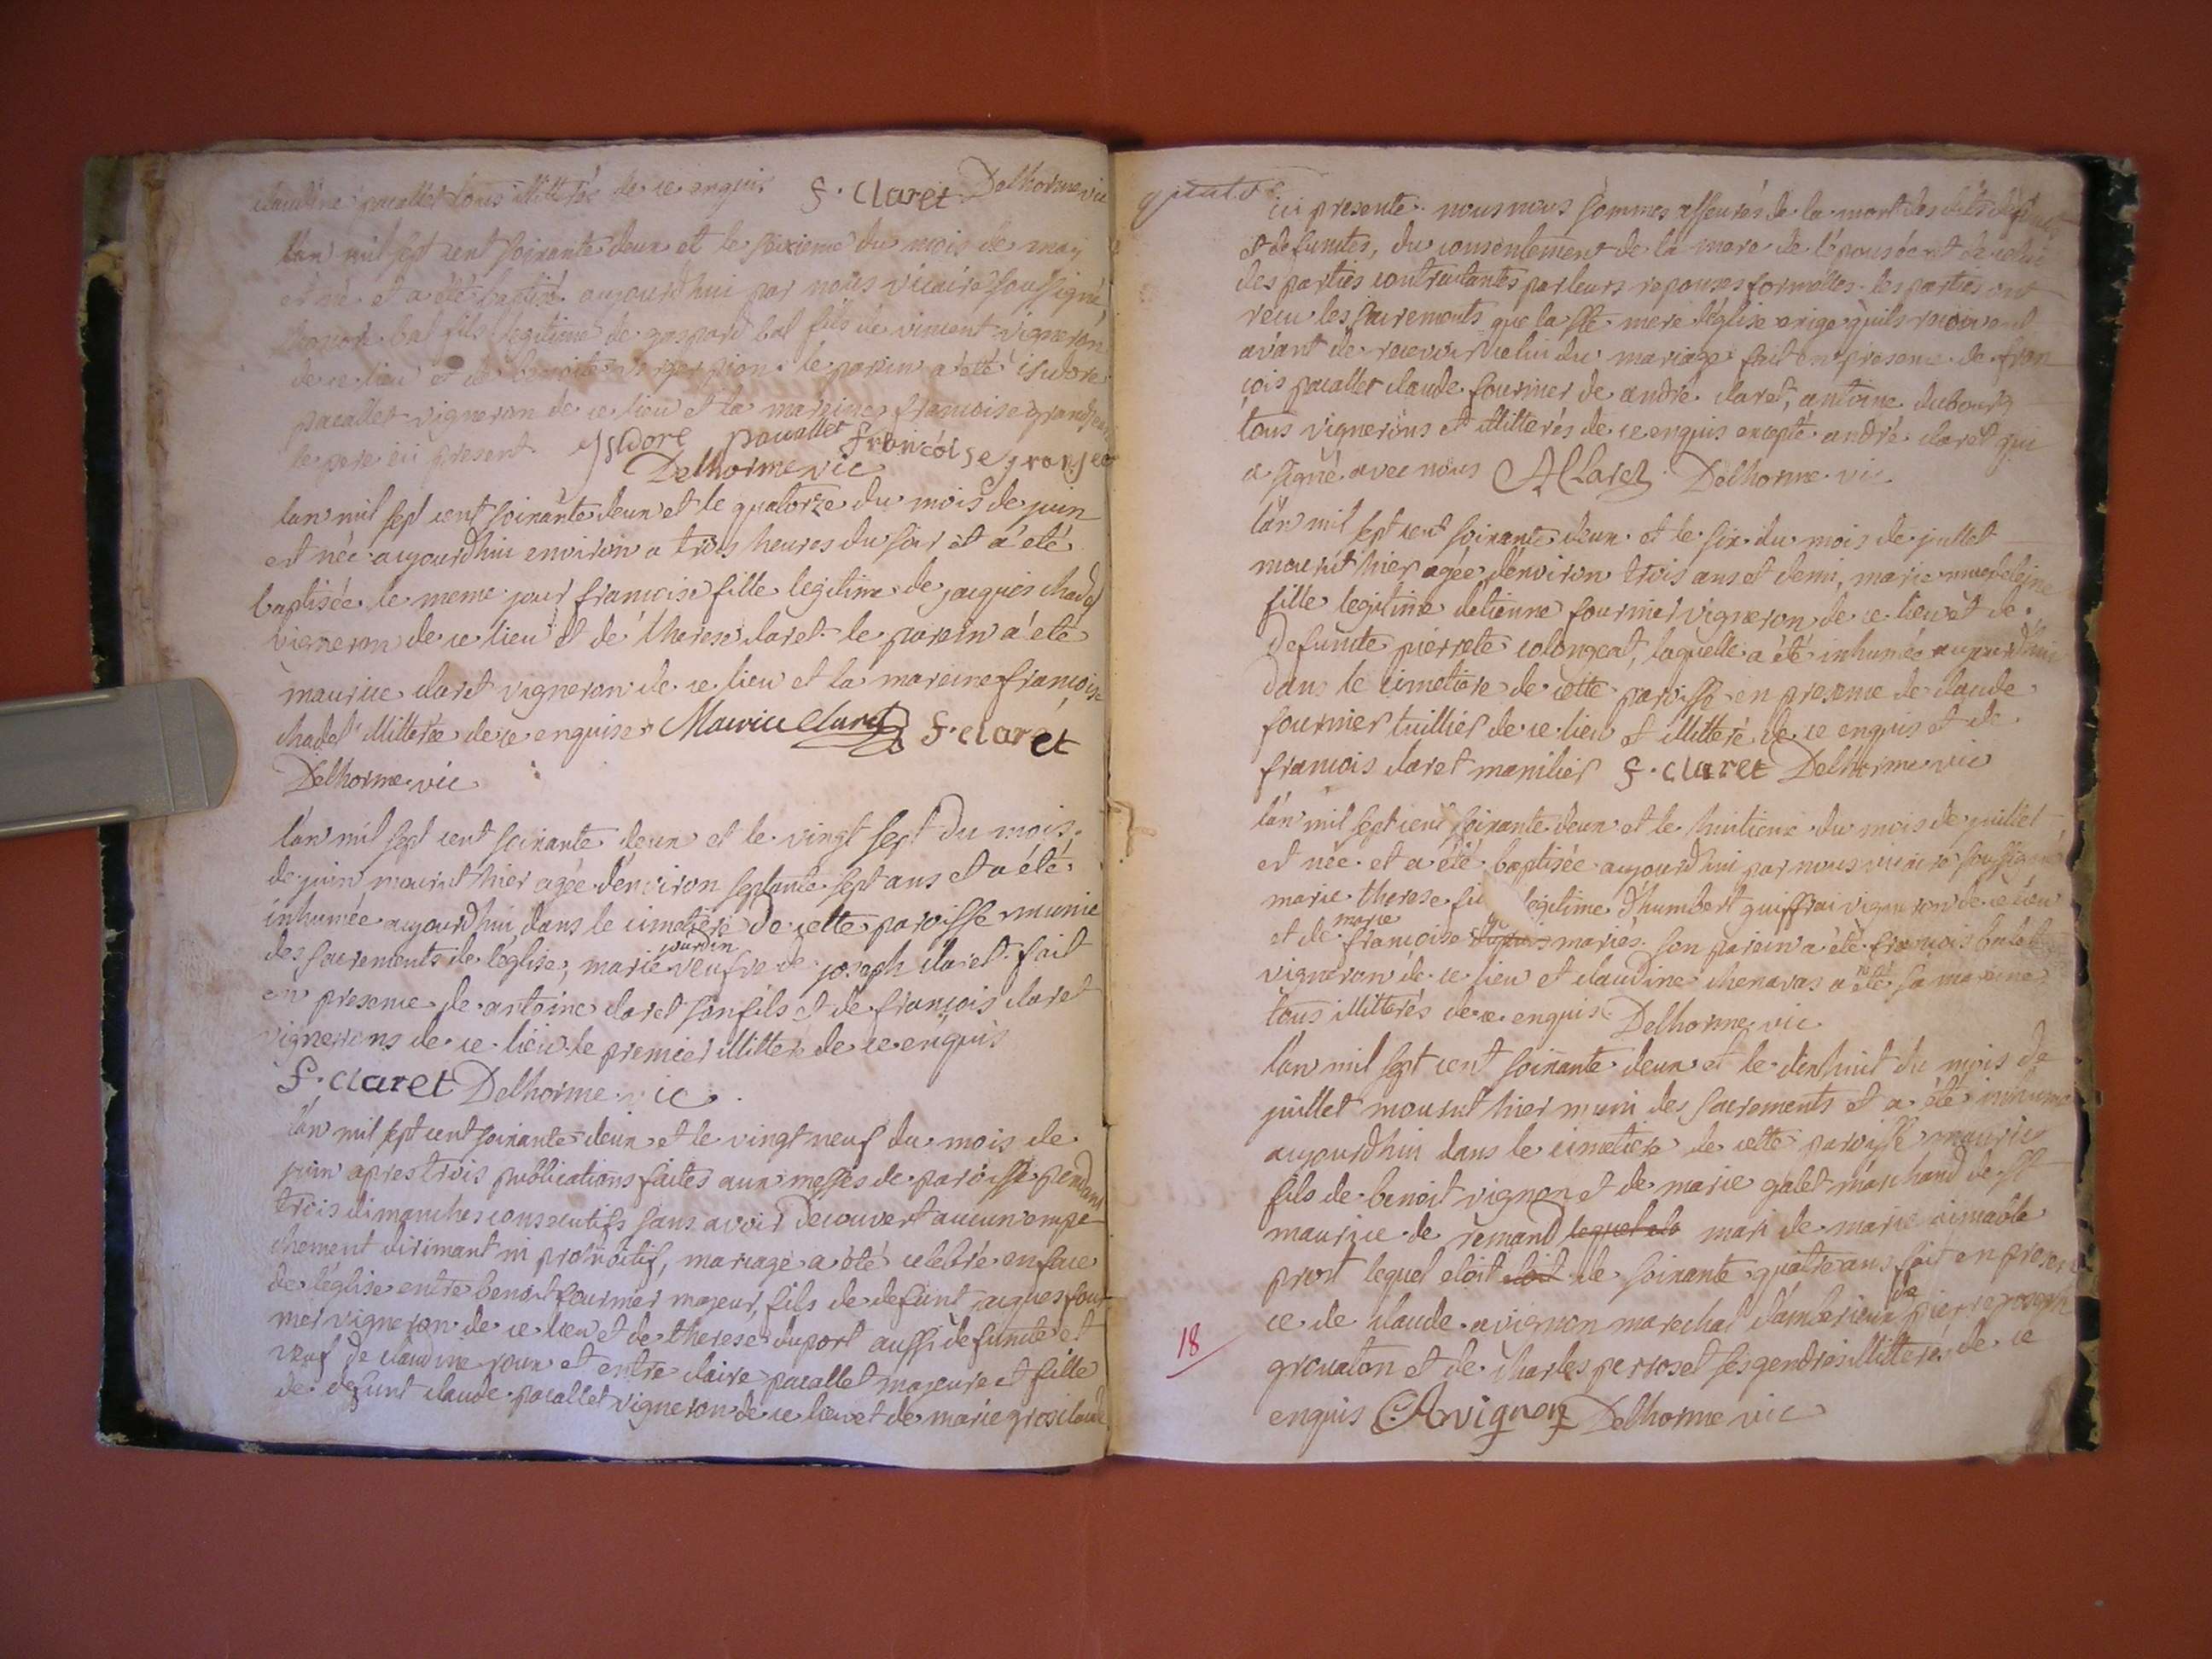 claudine pacallet tous illitterés de ce enquis F. Claret Delhorme vic
lan mil sept cent soixante deux et le seixieme du mois de may
est né et a été baptisé aujourdhui par nous vicaire soussigné
bal fils legitime de gaspard bal fils de vincent vigneron
de ce lieu et de benoite le parein a été isidore
pacallet vigneron de ce lieu et la mareine francoise
le pere ici present ysidore pacallet francoise
Delhorme vic
lan mil sept cent soixante deux et le quatorze du mois de juin
est née aujourdhui environ a trois heures du soir et a été
baptisée le meme jour francoise fille legitime de jacques chadel
vigneron de ce lieu et de therese claret le parein a été
maurice claret vigneron de ce lieu et la mareine francoise
chadel illitterée de ce enquise Maurice Claret F. claret
Delhorme vic
lan mil sept cent soixante deux et le vingt sept du mois
de juin mourut hier agée d'environ septante sept ans et a été
inhumée aujourdhui dans le cimetiere de cette paroisse munie
des sacrements de l'eglise, marie jourdin veufve de joseph claret fait
en presence de antoine claret son fils et de francois claret
vignerons de ce lieu le premier illitteré de ce enquis
F. claret Delhorme vic
lan mil sept cent soixante deux et le vingt neuf du mois de
juin apres trois publications faites aux messes de paroisse pendant
trois dimanches consecutifs sans avoir decouvert aucun empe
chement dirimant ni prohibitif, mariage a été celebré en face
de l'eglise entre benoit fournier majeur, fils de defunt jacques four
nier vigneron de ce lieu et de therese duport aussi defuncte et
veuf de claudine roux et entre claire pacallet majeure et fille
de defunt claude pacallet vigneron de ce lieu et de marie grosclaude
ici presente. nous nous sommes asseurés de la mort des dits defunts
et defunctes, du consentement de la mere de l'epouse et de celui
des parties contractantes par leurs reponses formelles. les parties ont
recu les sacrements que la ste mere l'eglise exige quils recoivent
avant de recevoir celui du mariage fait en presence de fran
cois pacallet claude fournier de andré claret, antoine dubourg
tous vignerons et illitterés de ce enquis excepté andré claret qui
a signé avec nous A Claret Delhorme vic
lan mil sept cent soixante deux et le six du mois de juillet
mourut hier agée denviron trois ans et demi, marie magdeleine
fille legitime detienne fournier vigneron de ce lieu et de
defuncte pierrete colongeat, laquelle a été inhumée aujourdhui
dans le cimetiere de cette paroisse en presence de claude
fournier tuillier de ce lieu et illitteré de ce enquis et de
francois claret manilier F. claret Delhorme vic
lan mil sept cent soixante deux et le huitieme du mois de juillet
est née et a été baptisée aujourdhui par nous vicaire soussigné
marie therese fi legitime d'humbert guiffrai vigneron de ce lieu
et de marie francoise mariés. son parein a été francois
vigneron de ce lieu et claudine chenavas a été sa mareine
tous illitterés de ce enquis Delhorme vic
lan mil sept cent soixante deux et le dixhuit du mois de
juillet mourut hier muni des sacrements et a été inhumé
aujourdhui dans le cimetiere de cette paroisse maurice
fils de benoit vignon et de marie galet marchand de st
maurice de remand lequel eto mari de marie aimable
prost lequel etoit etoit de soixante quatre ans fait en presen
ce de claude avignon marechal d'amberieux de pierre joseph
18
grouaton et de charles perroset ses gendres illitterés de ce
enquis C. Avignon Delhorme vic